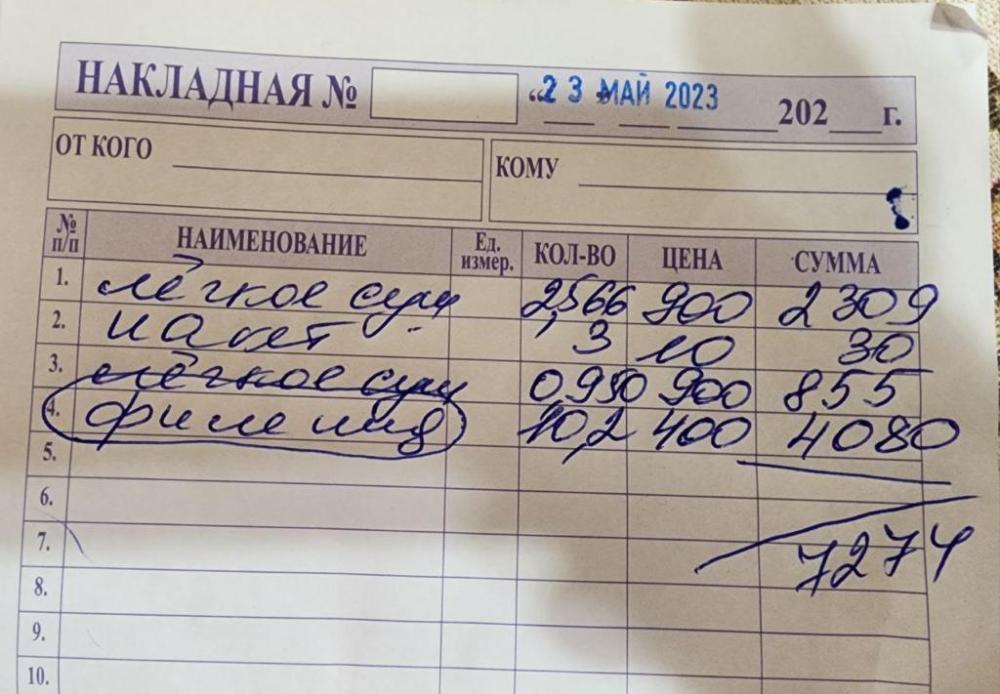 НАКЛАДНАЯ № „23 МАЙ 2023 202 г.
ОТ КОГО КОМУ
№ п/п НАИМЕНОВАНИЕ Ед. измер. КОЛ-ВО ЦЕНА СУММА
1. лёгкое суш 2,566 900 2309
2. пакет 3 10 30
3. лёгкое суш 0,950 900 855
4. филе инд 10,2 400 4080
5.
6.
7. 7274
8.
9.
10.